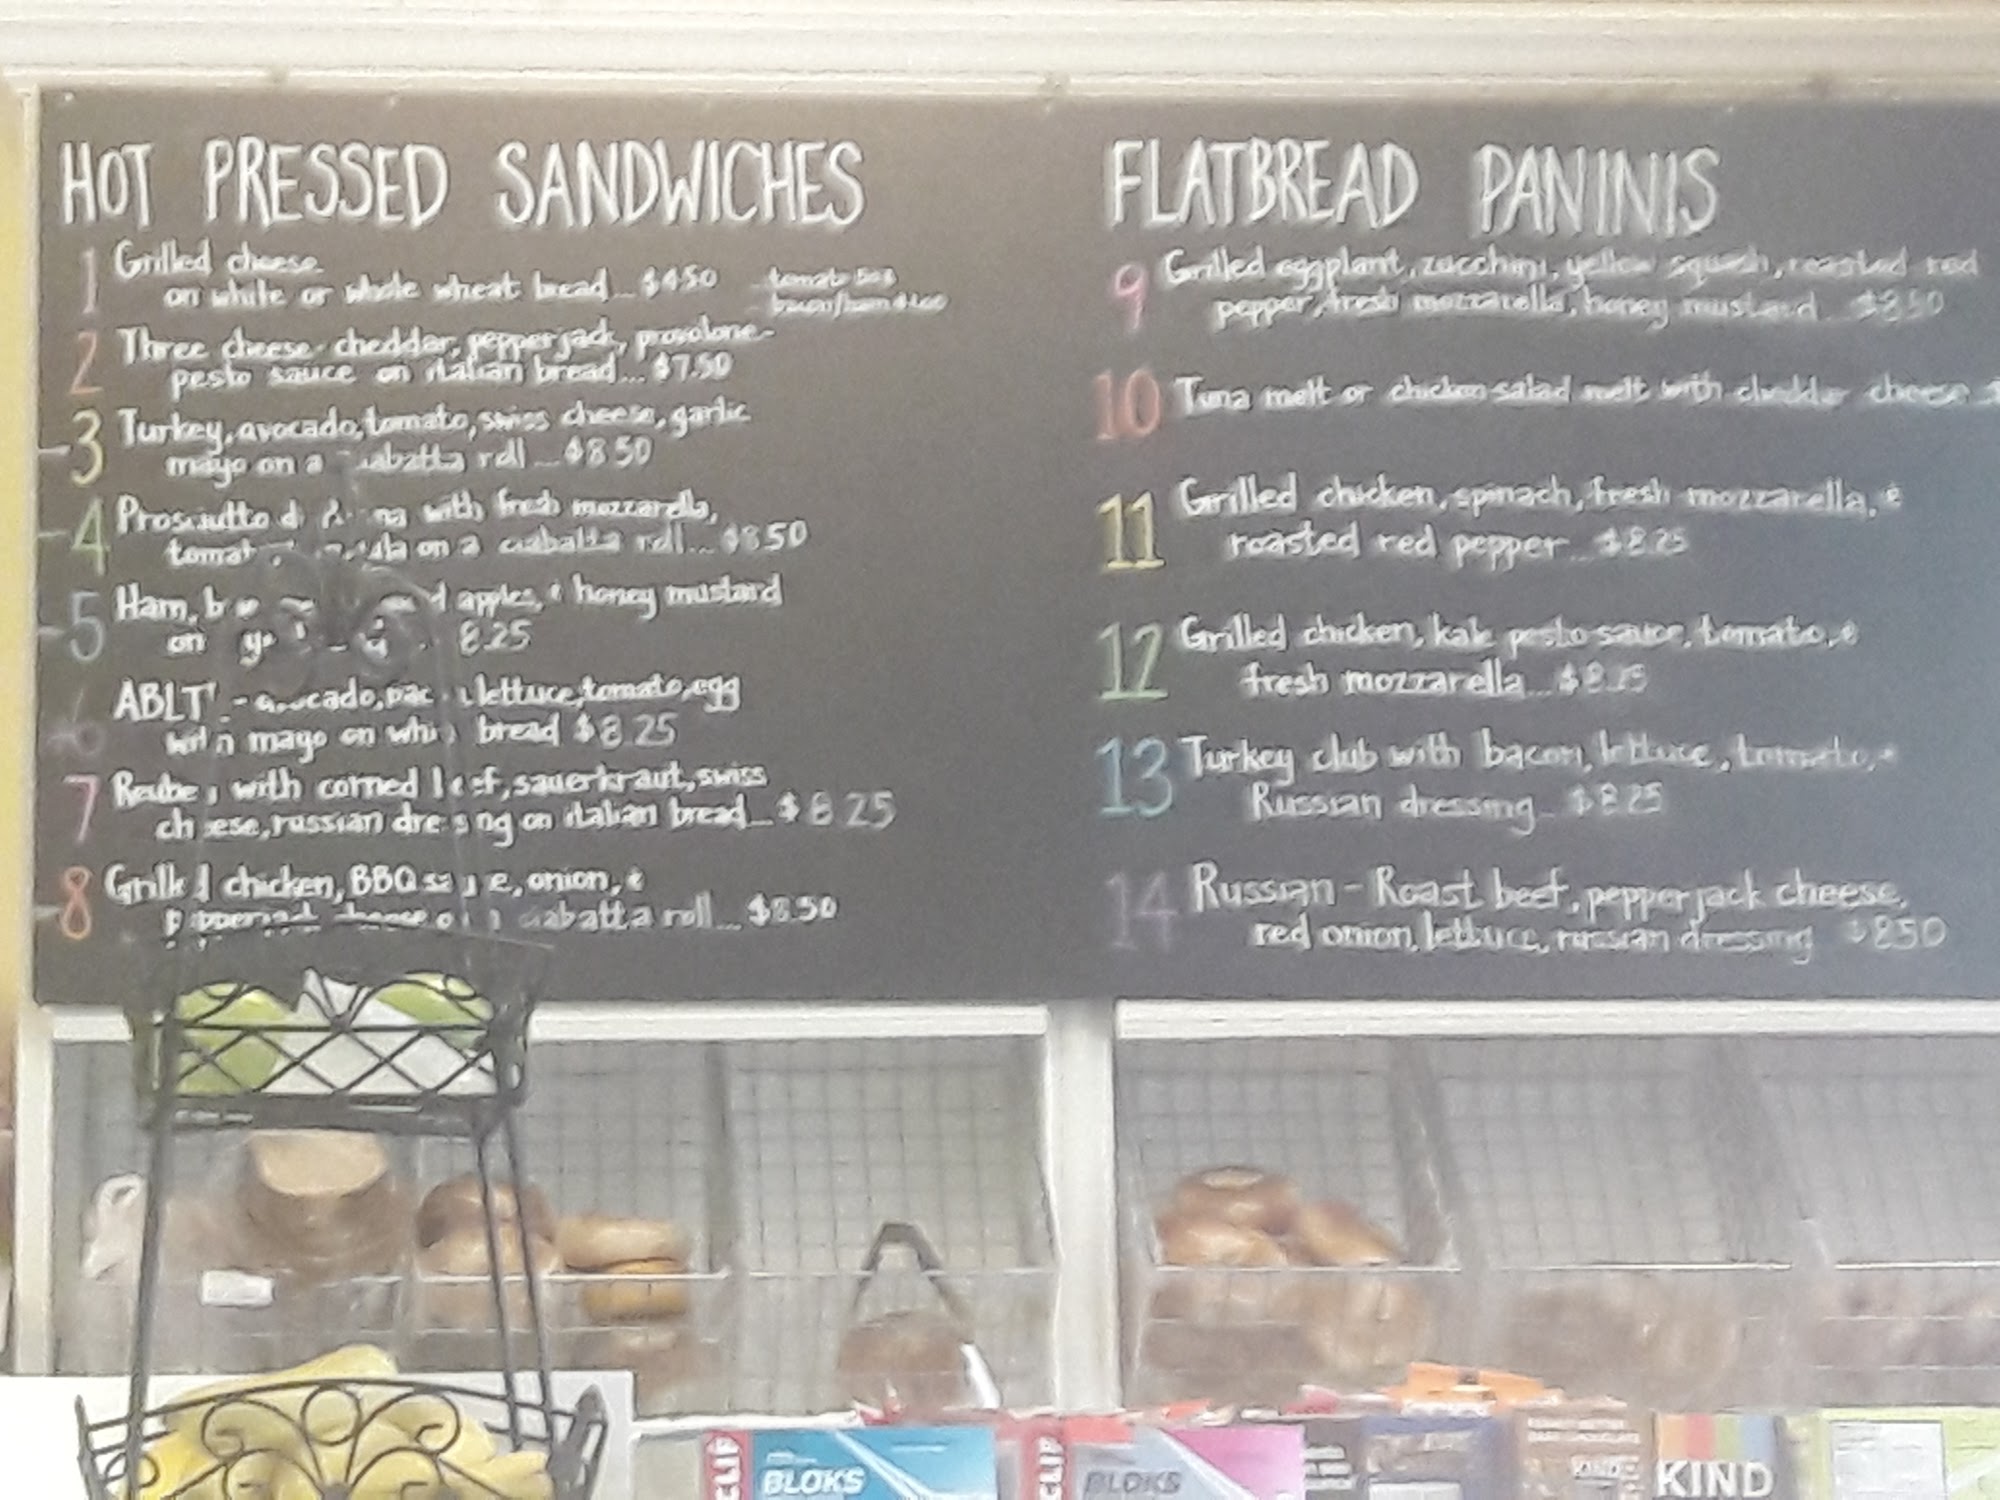 HOT PRESSED SANDWICHES
1 Grilled cheese
on white or whole wheat bread... $4.50
2 Three cheese - cheddar, pepperjack, provolone -
pesto sauce on italian bread... $7.50
3 Turkey, avocado, tomato, swiss cheese, garlic
mayo on a roll... $8.50
4 Prosciutto with fresh mozzarella,
on a ciabatta roll... $8.50
5 Ham, apples, & honey mustard
on 8.25
ABLT - avocado, lettuce, tomato, egg
with mayo on bread $8.25
7 Reuben with corned sauerkraut, swiss
cheese, russian dressing on italian bread... $8.25
8 Grilled chicken, BBQ onion, &
ciabatta roll... $8.50
FLATBREAD PANINIS
9 Grilled eggplant, zucchini, yellow squash, roasted red
pepper, fresh mozzarella, honey mustard... $8.50
10 Tuna melt or chicken salad melt with cheddar cheese
11 Grilled chicken, spinach, fresh mozzarella, &
roasted red pepper... $8.25
12 Grilled chicken, kale pesto sauce, tomato, &
fresh mozzarella... $8.25
13 Turkey club with bacon, lettuce, tomato, &
Russian dressing... $8.25
14 Russian - Roast beef, pepper jack cheese,
red onion, lettuce, russian dressing $8.50
CLIF BLOKS
CLIF BLOKS
KIND
KIND